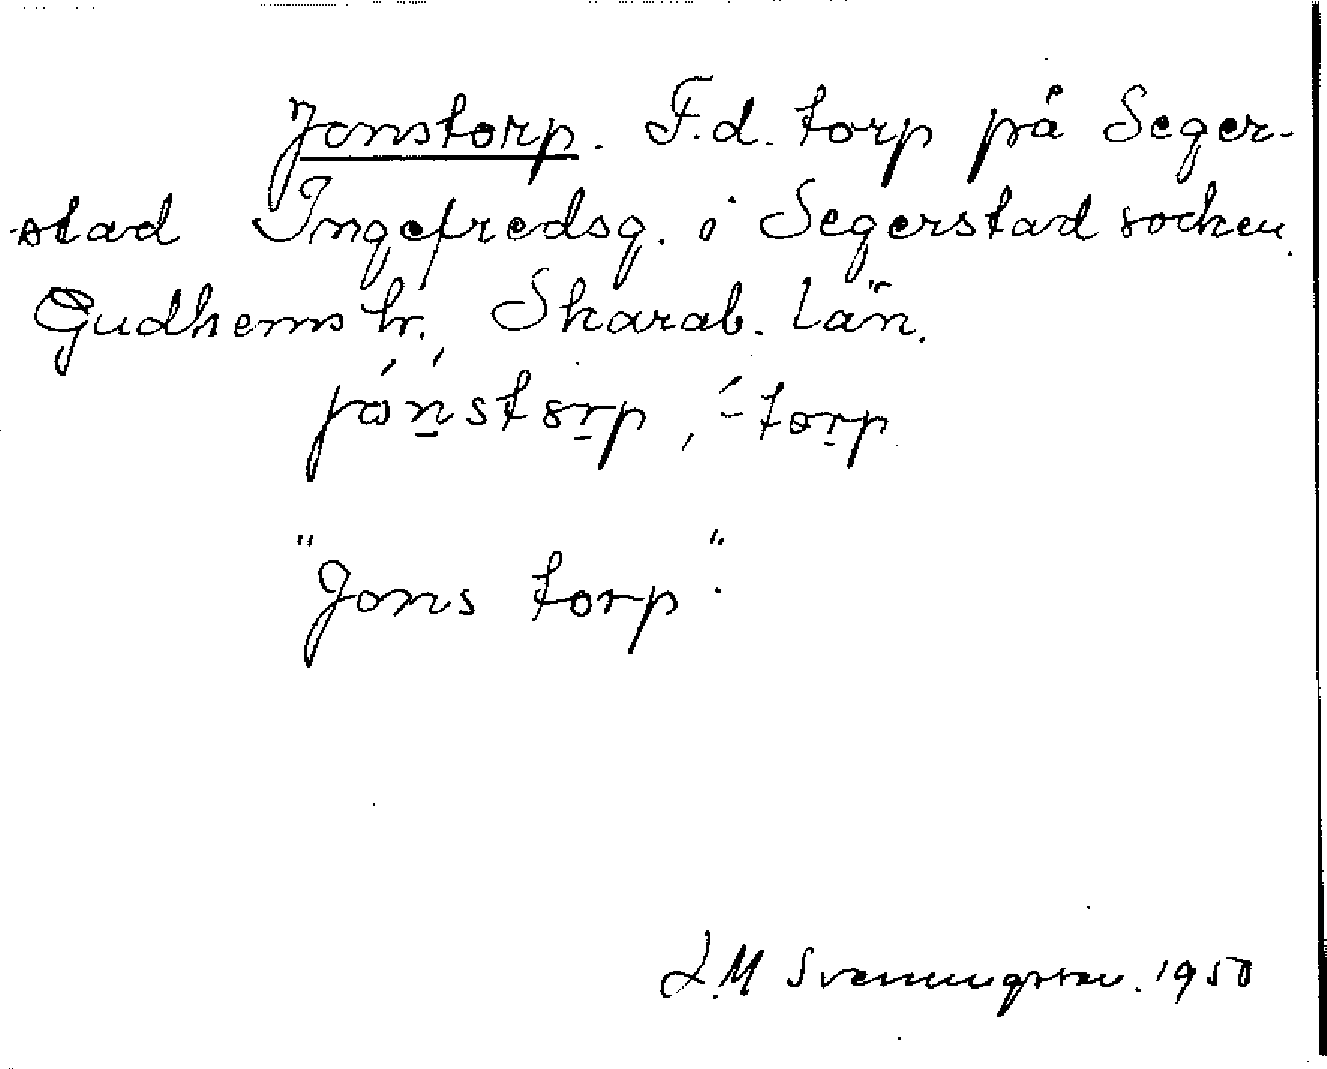 Jonstorp. F.d. torp på Seger-
stad Ingefredsg. i Segerstad socken
Gudhems hr. Skarab. län.
jónstorp, ́-torp
"Jons torp".
L.M Svenungsson. 1950